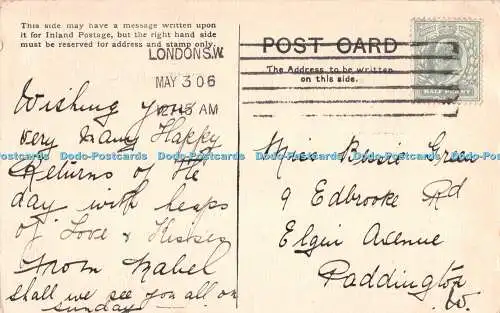 This side may have a message written upon
it for Inland Postage, but the right hand side
must be reserved for address and stamp only.
LONDON S.W.
MAY 3 06
12.15 AM
POST CARD
The Address to be written
on this side.
HALFPENNY
Wishing you
very many Happy
Returns of the
day with heaps
of Love & Kisses
from Mabel
shall we see you all on
sunday
Miss Green
9 Edbrooke Rd
Elgin Avenue
Paddington
W.
Dodo-Postcards Dodo-Postcards Dodo-Postcards Dodo-Postcards Dodo-Postcards
Dodo-Postcards Dodo-Postcards Dodo-Postcards Dodo-Postcards